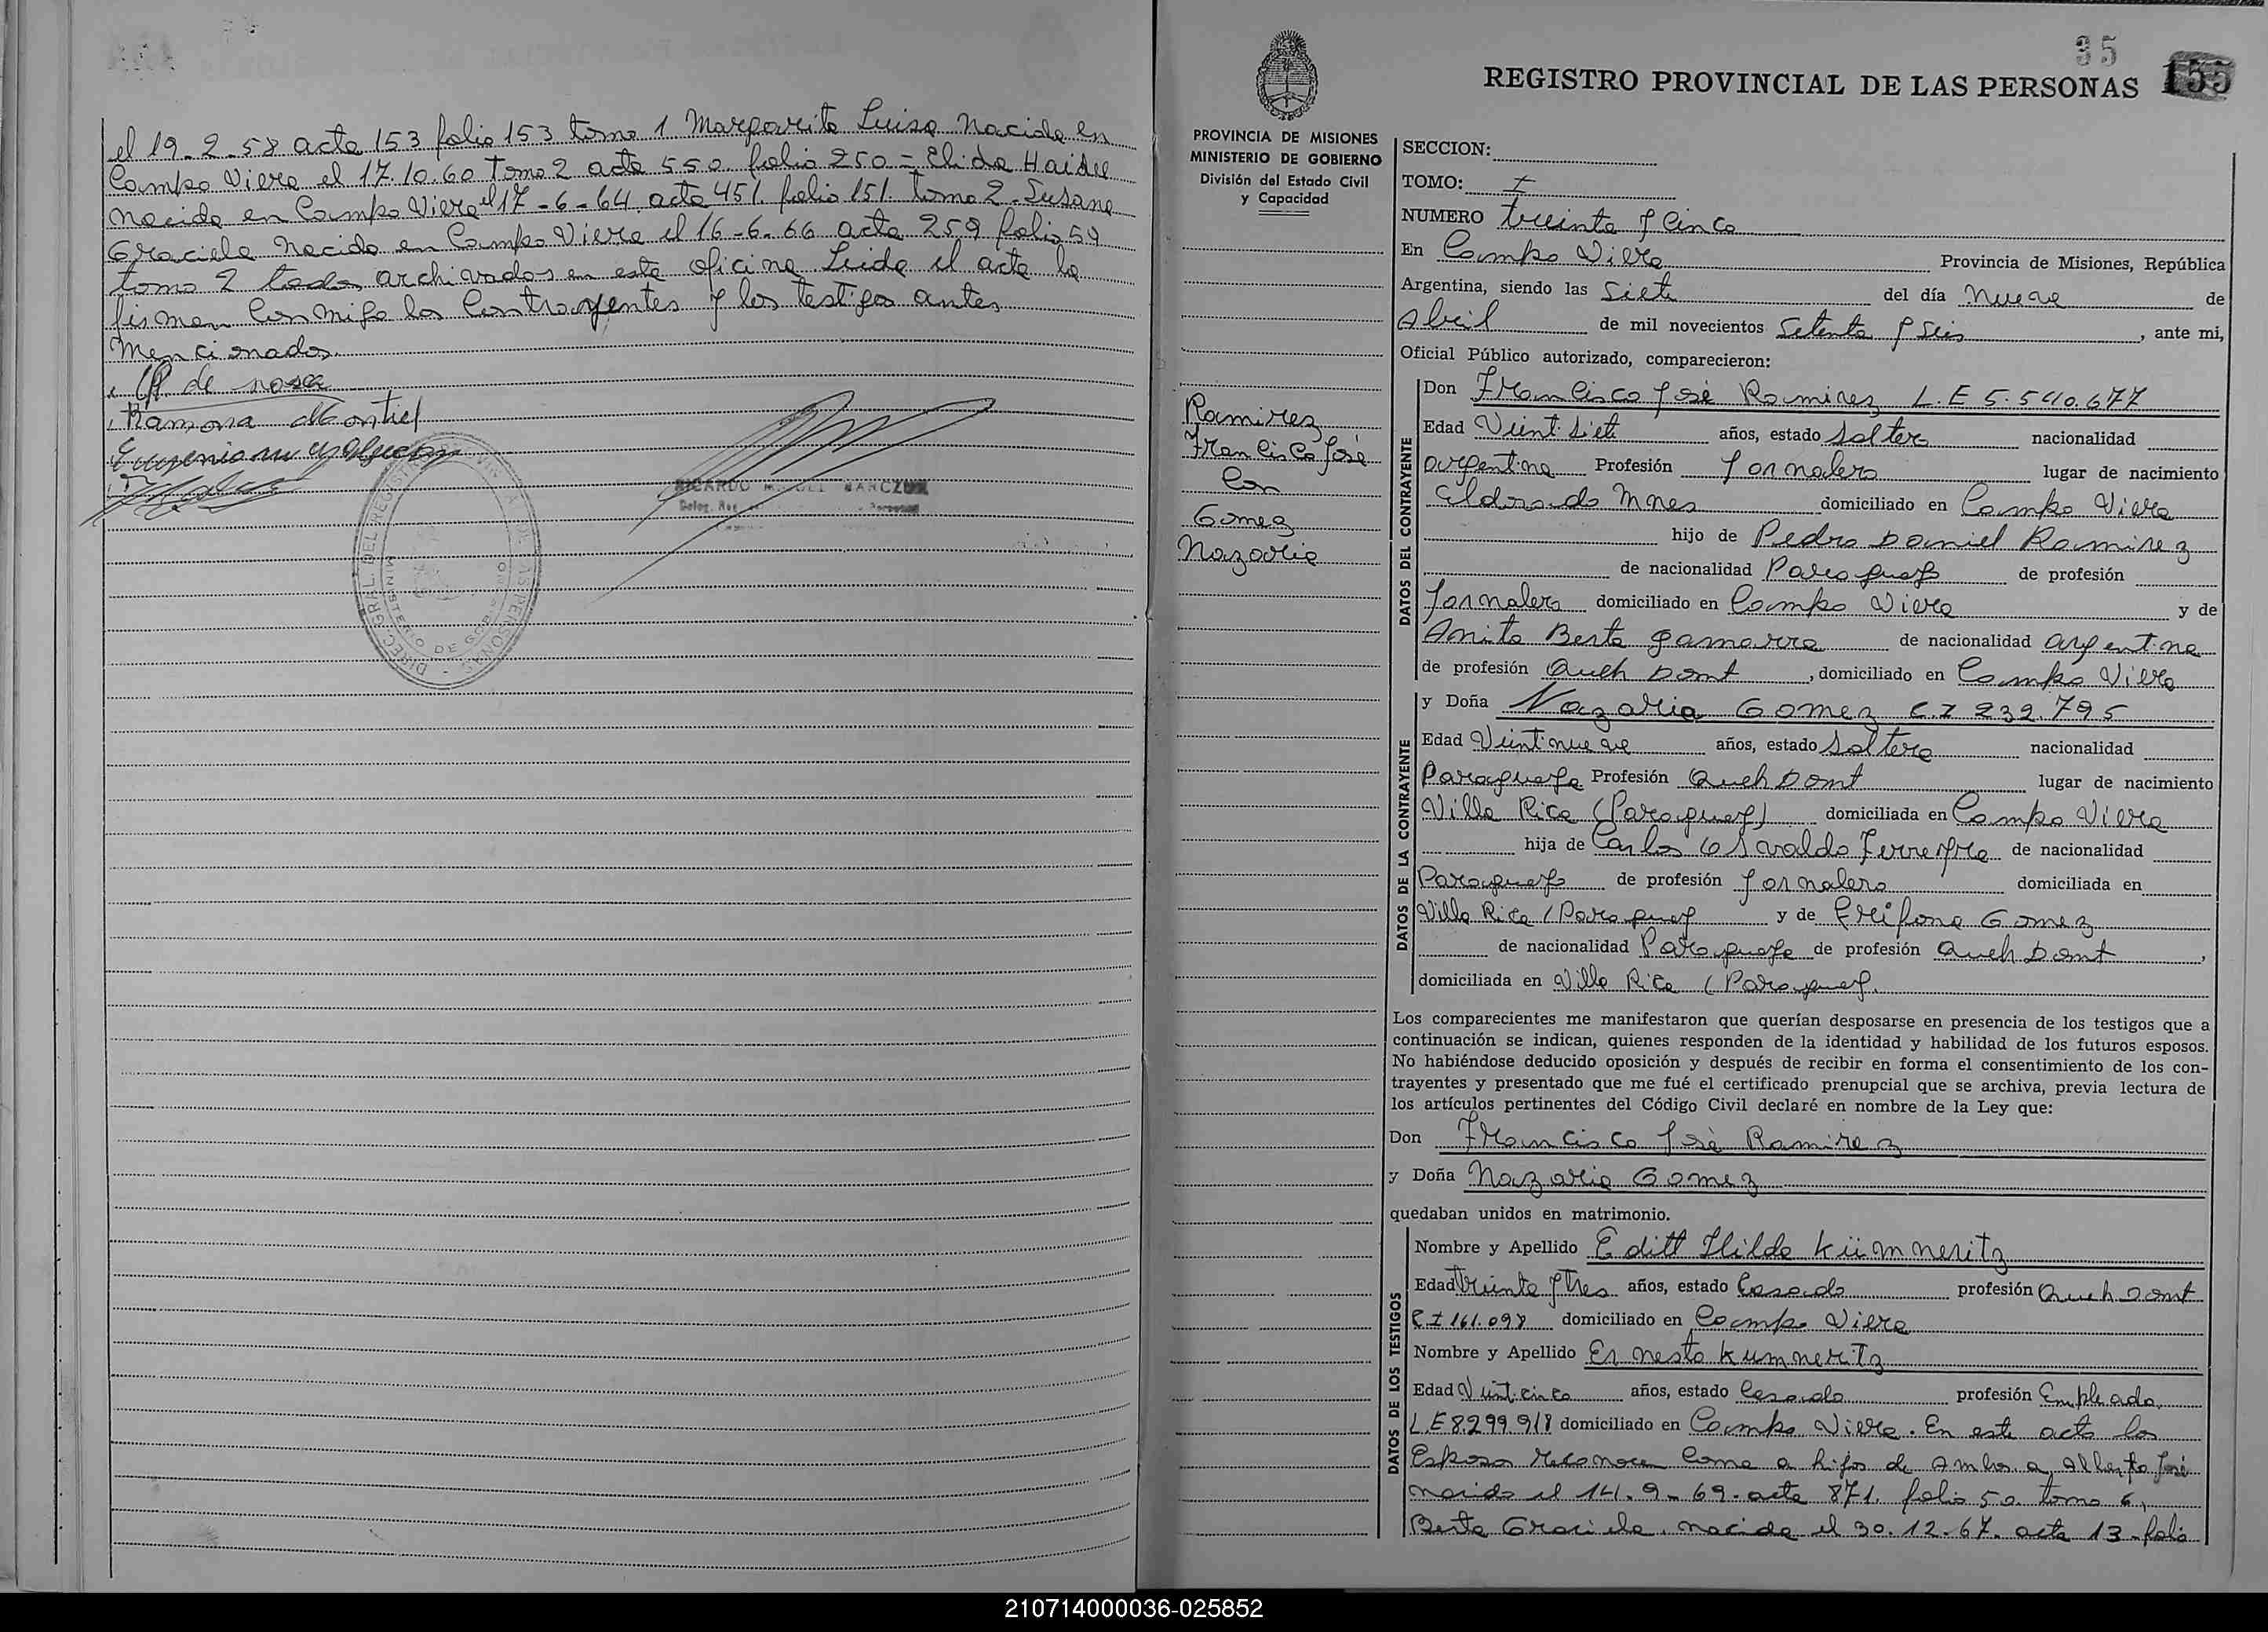 el 19-2-58 acta 153 folio 153 tomo 1 Margarita Luisa Nacida en
Campo Viera el 17.10.60 Tomo 2 acta 550 folio 250 = Elida Haidee
Nacida en Campo Viera el 17-6-64 acta 451 folio 151 tomo 2. Susana
Graciela Nacida en Campo Viera el 16-6-66 acta 259 folio 59
tomo 2 todos archivados en esta oficina Leida el acta la
firman Conmigo los Contrayentes y los testigos antes
Mencionados.
Ramona Montiel
RICARDO MIGUEL
DIREC. GRAL. DEL REGISTRO PROVINCIAL DE LAS PERSONAS
MINISTERIO DE GOBIERNO
35
155
REGISTRO PROVINCIAL DE LAS PERSONAS
PROVINCIA DE MISIONES
MINISTERIO DE GOBIERNO
División del Estado Civil
y Capacidad
Ramirez
Francisco José
Con
Gomez
Nazaria
SECCION:
TOMO: I
NUMERO treinta y Cinco
En Campo Viera Provincia de Misiones, República
Argentina, siendo las Siete del día Nueve de
Abril de mil novecientos Setenta y Seis, ante mi,
Oficial Público autorizado, comparecieron:
DATOS DEL CONTRAYENTE
Don Francisco José Ramirez L.E 5.540.677
Edad Veintisiete años, estado Soltero nacionalidad
argentina Profesión Jornalero lugar de nacimiento
Eldorado Mnes domiciliado en Campo Viera
hijo de Pedro Daniel Ramirez
de nacionalidad Paraguayo de profesión
Jornalero domiciliado en Campo Viera y de
Anita Berta Gamarra de nacionalidad argentina
de profesión Queh Domt, domiciliado en Campo Viera
DATOS DE LA CONTRAYENTE
y Doña Nazaria Gomez C.I 232.795
Edad Veintinueve años, estado Soltera nacionalidad
Paraguaya Profesión Queh Domt lugar de nacimiento
Villa Rica (Paraguay) domiciliada en Campo Viera
hija de Carlos Osvaldo Ferreyra de nacionalidad
Paraguayo de profesión Jornalero domiciliada en
Villa Rica (Paraguay y de Gomez
de nacionalidad Paraguaya de profesión Queh Domt,
domiciliada en Villa Rica (Paraguay.
Los comparecientes me manifestaron que querían desposarse en presencia de los testigos que a
continuación se indican, quienes responden de la identidad y habilidad de los futuros esposos.
No habiéndose deducido oposición y después de recibir en forma el consentimiento de los con-
trayentes y presentado que me fué el certificado prenupcial que se archiva, previa lectura de
los artículos pertinentes del Código Civil declaré en nombre de la Ley que:
Don Francisco José Ramirez
y Doña Nazaria Gomez
quedaban unidos en matrimonio.
DATOS DE LOS TESTIGOS
Nombre y Apellido Editt Hilda Kümmeritz
Edad treinta y tres años, estado Casada profesión Queh Domt
C I 161.098 domiciliado en Campo Viera
Nombre y Apellido Ernesto Kummeritz
Edad Veinticinco años, estado Casado profesión Empleado
L.E 8.299.918 domiciliado en Campo Viera. En este acto los
Esposos reconocen Como a hijos de Ambos a Alberto José
nacido el 14-9-69. acta 871. folio 50 tomo 6,
Berta Graciela. nacida el 30.12-67. acta 13-folio
210714000036-025852